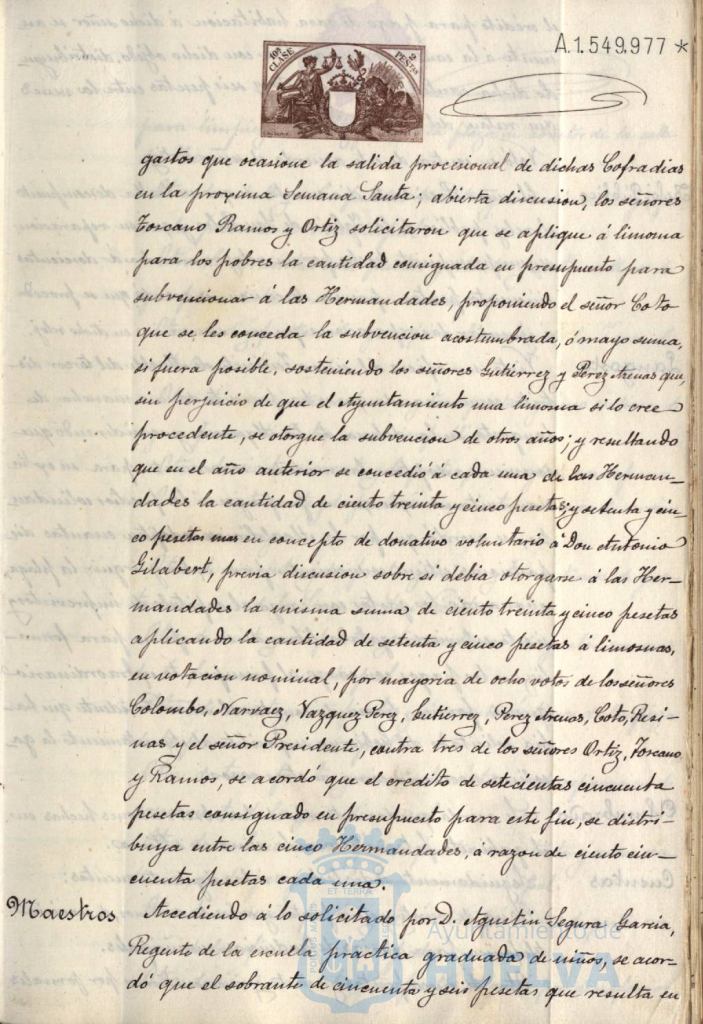 A.1.549.977 *
10ª CLASE
2 PESETAS
gastos que ocasione la salida procesional de dichas Cofradias
en la proxima Semana Santa; abierta discusion, los señores
Toscano Ramos y Ortiz solicitaron que se aplique á limosna
para los pobres la cantidad consignada en presupuesto para
subvencionar á las Hermandades, proponiendo el señor Coto
que se les conceda la subvencion acostumbrada, ó mayo suma,
si fuera posible, sosteniendo los señores Gutierrez y Perez Arenas que,
sin perjuicio de que el Ayuntamiento una limosna si lo cree
procedente, se otorgue la subvencion de otros años; y resultando
que en el año anterior se concedió á cada una de las Herman-
dades la cantidad de ciento treinta y cinco pesetas; y setenta y cin-
co pesetas mas en concepto de donativo voluntario á Don Antonio
Gilabert, previa discusion sobre si debia otorgarse á las Her-
mandades la misma suma de ciento treinta y cinco pesetas
aplicando la cantidad de setenta y cinco pesetas á limosnas,
en votacion nominal, por mayoria de ocho votos de los señores
Colombo, Narvaez, Vazquez Perez, Gutierrez, Perez Arenas, Coto, Resi-
nas y el señor Presidente, contra tres de los señores Ortiz, Toscano
y Ramos, se acordó que el credito de setecientas cincuenta
pesetas consignado en presupuesto para este fin, se distri-
buya entre las cinco Hermandades, á razon de ciento cin-
cuenta pesetas cada una.
Maestros Accediendo á lo solicitado por D. Agustin Segura Garcia,
Regente de la escuela practica graduada de niños, se acor-
dó que el sobrante de cincuenta y seis pesetas que resulta en
Ayuntamiento de
HUELVA